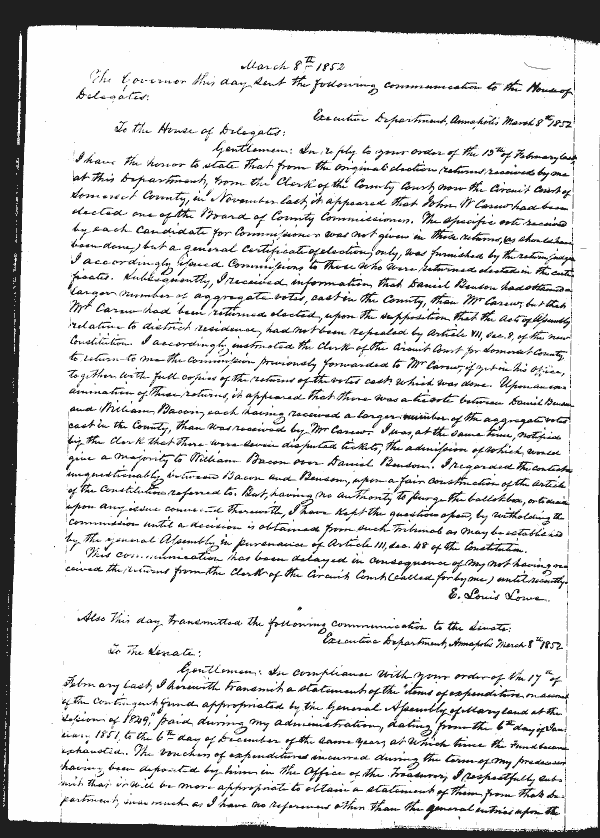 March 8th 1852
The Governor this day sent the following communication to the House of
Delegates:
Executive Department, Annapolis March 8th 1852
To the House of Delegates:
Gentlemen: In reply to your order of the 13th of February last
I have the honor to state that from the original election returns received by me
at this Department, from the Clerk of the County Court, now the Circuit Court of
Somerset County, in November last, it appeared that John W Carew had been
elected one of the Board of County Commissioners. The specific vote received
by each candidate for Commissioner was not given in those returns, as should have
been done, but a general certificate of election, only, was furnished by the return judges
I accordingly issued Commissions to those who were returned elected in the certi-
ficates. Subsequently, I received information, that Daniel Benson had obtained a
larger number of aggregate votes, cast in the County, than Mr Carew, but that
Mr Carew had been returned elected, upon the supposition that the Acts of Assembly
relative to district residence, had not been repealed by Article VII, sec. 8, of the new
Constitution. I accordingly instructed the Clerk of the Circuit Court for Somerset County
to return to me the Commission previously forwarded to Mr Carew, if yet in his office,
together with full copies of the returns of the votes cast which was done. Upon an ex-
amination of these returns, it appeared that there was a tie vote between Daniel Benson
and William Bacon, each having received a larger number of the aggregate votes
cast in the County, than was received by Mr Carew. I was at the same time, notified
by the Clerk that there were seven disputed tickets, the admission of which, would
give a majority to William Bacon over Daniel Benson. I regarded the contest as
unquestionably between Bacon and Benson, upon a fair construction of the article
of the Constitution referred to. But, having no authority to purge the ballot box, or to decide
upon any issue connected therewith, I have kept the question open, by witholding the
commission until a decision is obtained from such tribunal as may be established
by the general Assembly in pursuance of Article 111, sec. 48 of the Constitution.
This communication has been delayed in consequence of my not having re-
ceived the returns from the Clerk of the Circuit Court (called for by me) until recently
E. Louis Lowe
Also this day transmitted the following communication to the Senate:
Executive Department, Annapolis March 8th 1852
To the Senate:
Gentlemen: In compliance with your order of the 17th of
February last, I herewith transmit a statement of the items of expenditure on account
of the contingent fund appropriated by the General Assembly of Maryland at the
session of 1849, paid during my administration, dating from the 6th day of Jan-
uary 1851, to the 6th day of December of the same year, at which time the Fund became
exhausted. The vouchers of expenditures incurred during the term of my predecessor
having been deposited by him in the Office of the Treasurer, I respectfully sub-
mit that it will be more appropriate to obtain a statement of them from that De-
partment, inasmuch as I have no references other than the general entries upon the